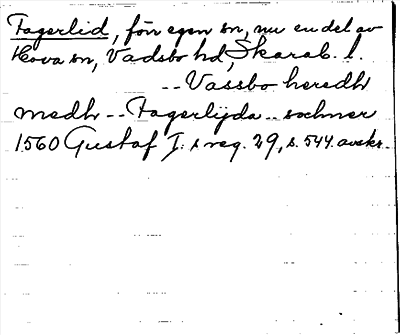 Fagerlid, förr egen sn, nu en del av
Hova sn, Vadsbo hd, Skarab. l.
-- Vassbo heredh
medh -- Fagerlijda -- sochner
1560 Gustaf I:s reg. 29, s. 544. avskr.